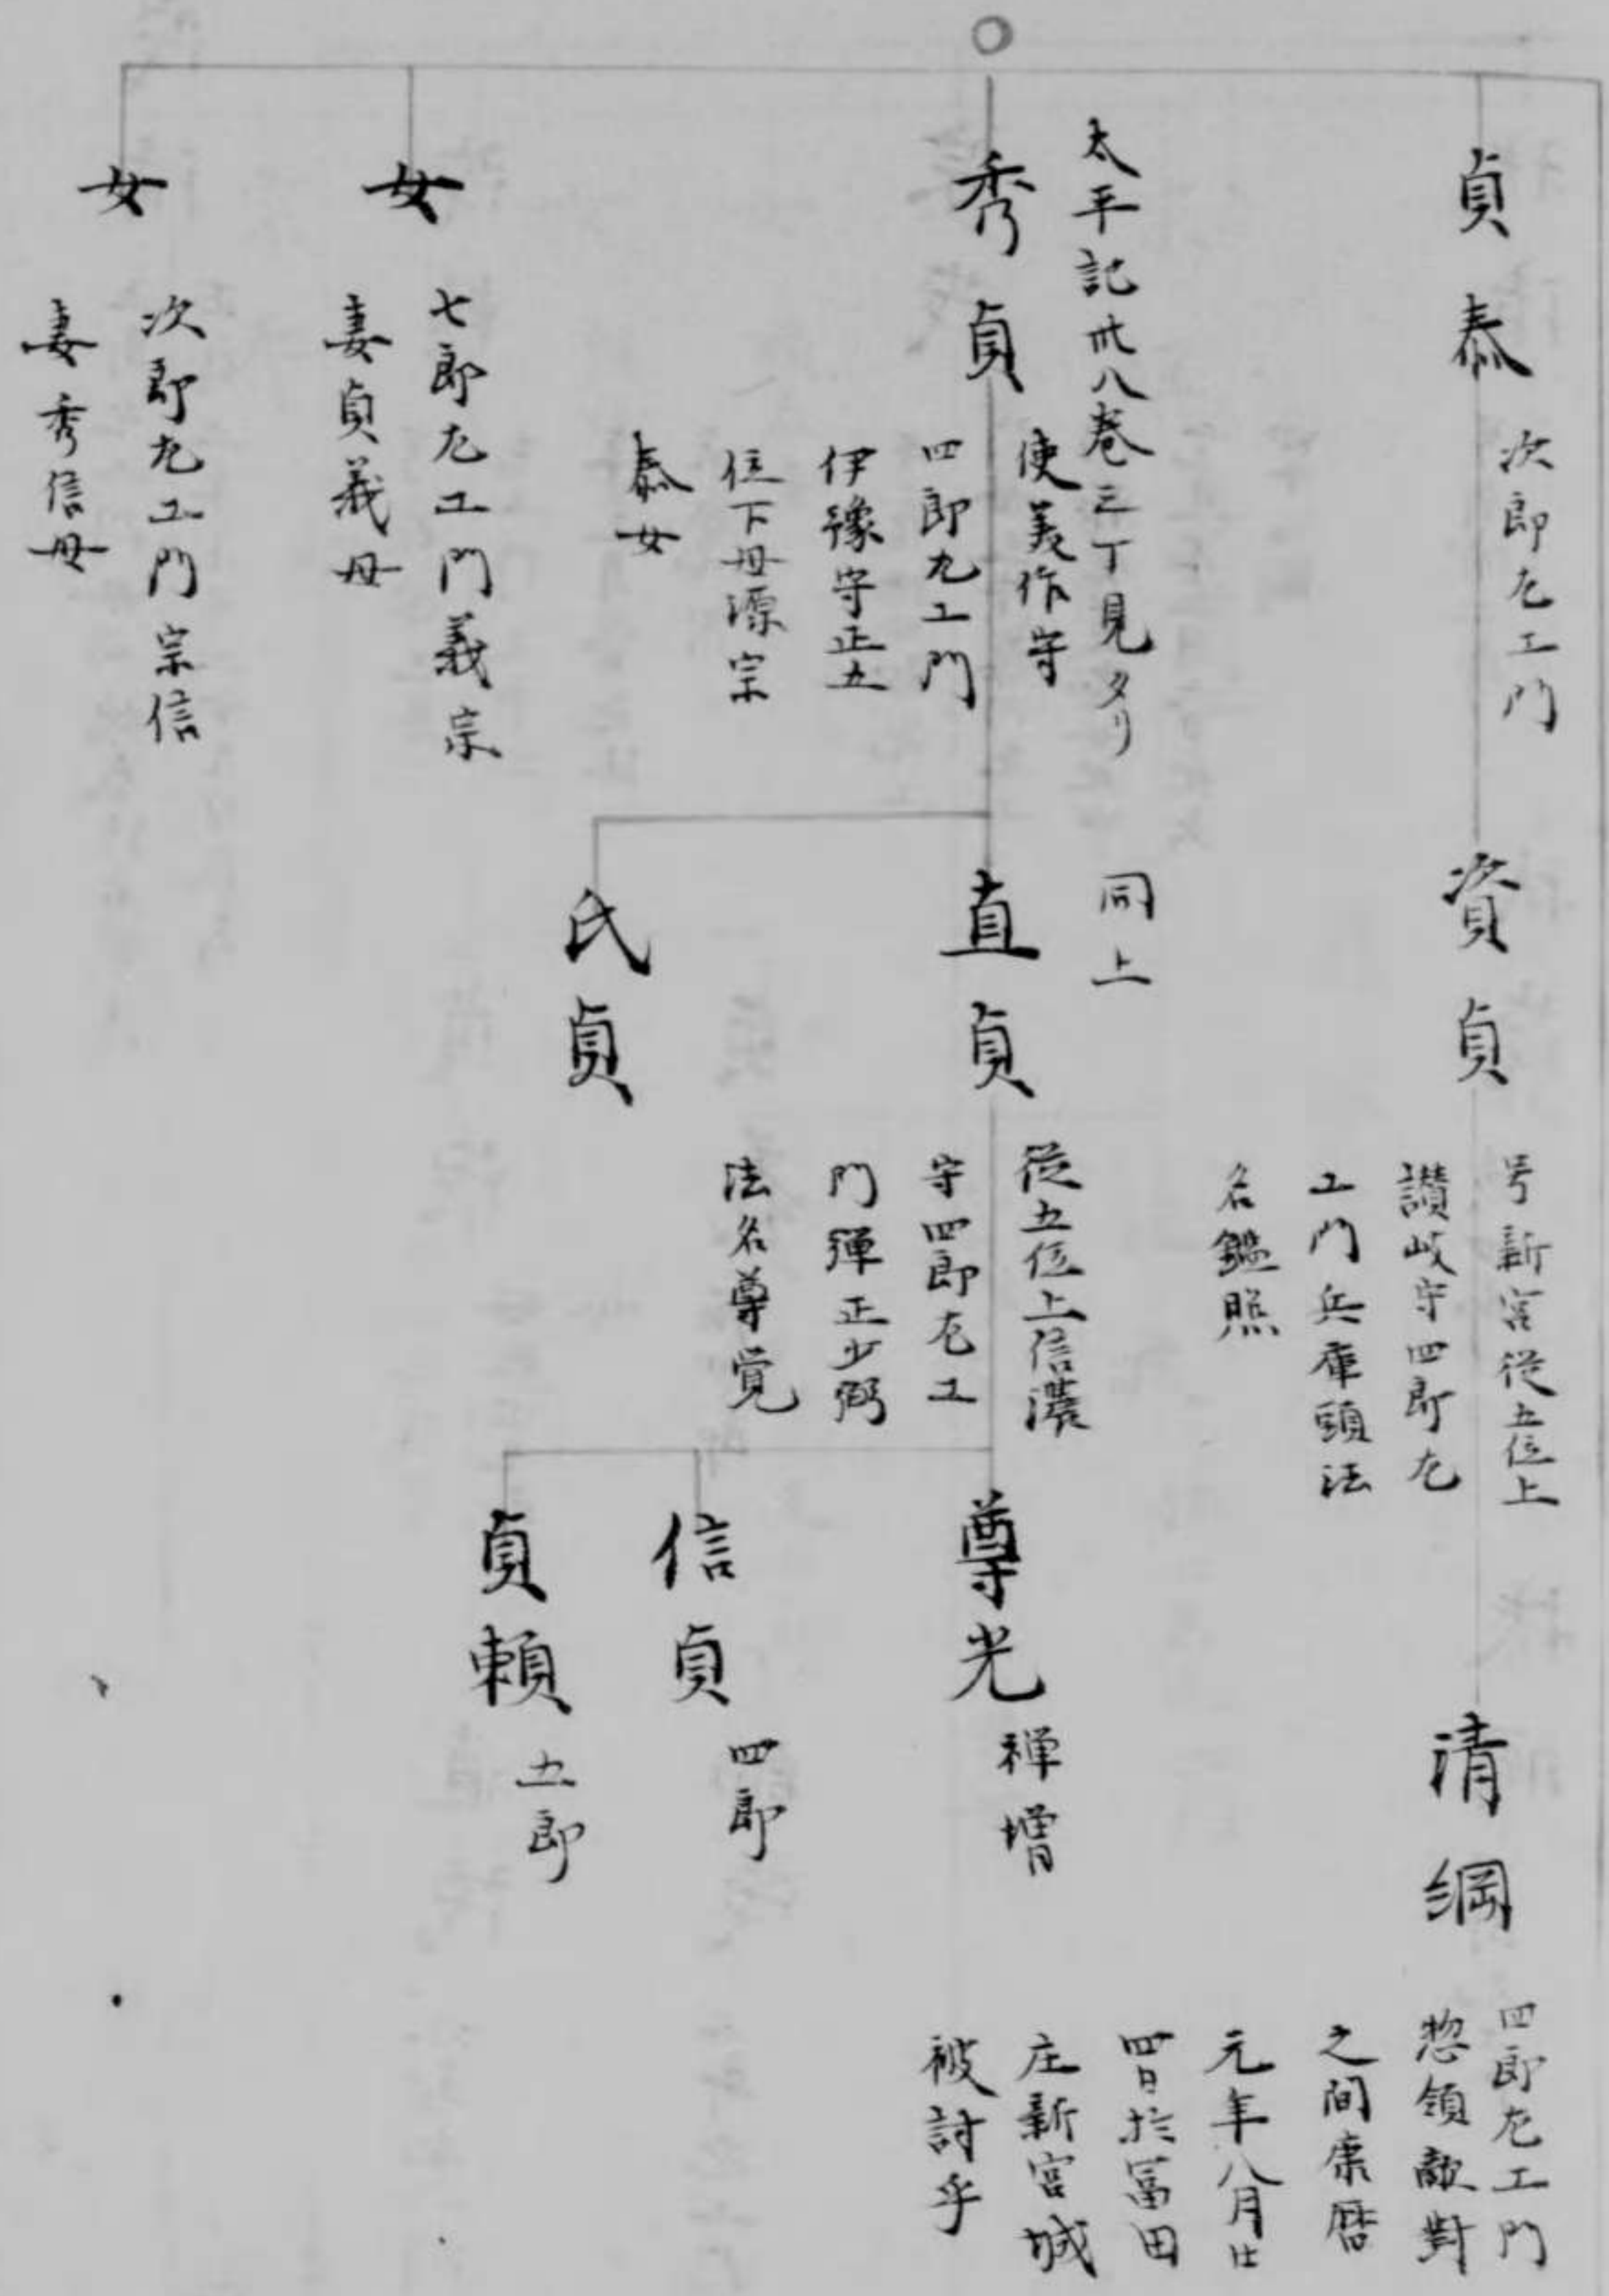 貞泰
次郎左エ門
資貞
号新宮従五位上
讃岐守四郎左
エ門兵庫頭法
名鑑照
清綱
四郎左エ門
惣領敵對
之間康暦
元年八月廿
四日於冨田
庄新宮城
被討乎
太平記卅八巻三丁見タリ
秀貞
使美作守
四郎左エ門
伊豫守正五
位下母源宗
泰女
同上
直貞
従五位上信濃
守四郎左エ
門弾正少弼
法名尊覚
尊光
禅増
信貞
四郎
貞頼
五郎
氏貞
女
七郎左エ門義宗
妻貞義母
女
次郎左エ門宗信
妻秀信母